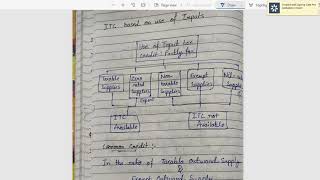 ITC based on use of Inputs
Use of Input tax
credit: Partly for
Taxable
Supplies
Zero
rated
Supplies
Non-
taxable
Supplies
Exempt
Supplies
Nil
Supplies
Export
ITC
Available
ITC not
Available
Common Credit :-
In the ratio of Taxable Outward Supply
&
Exempt Outward Supply